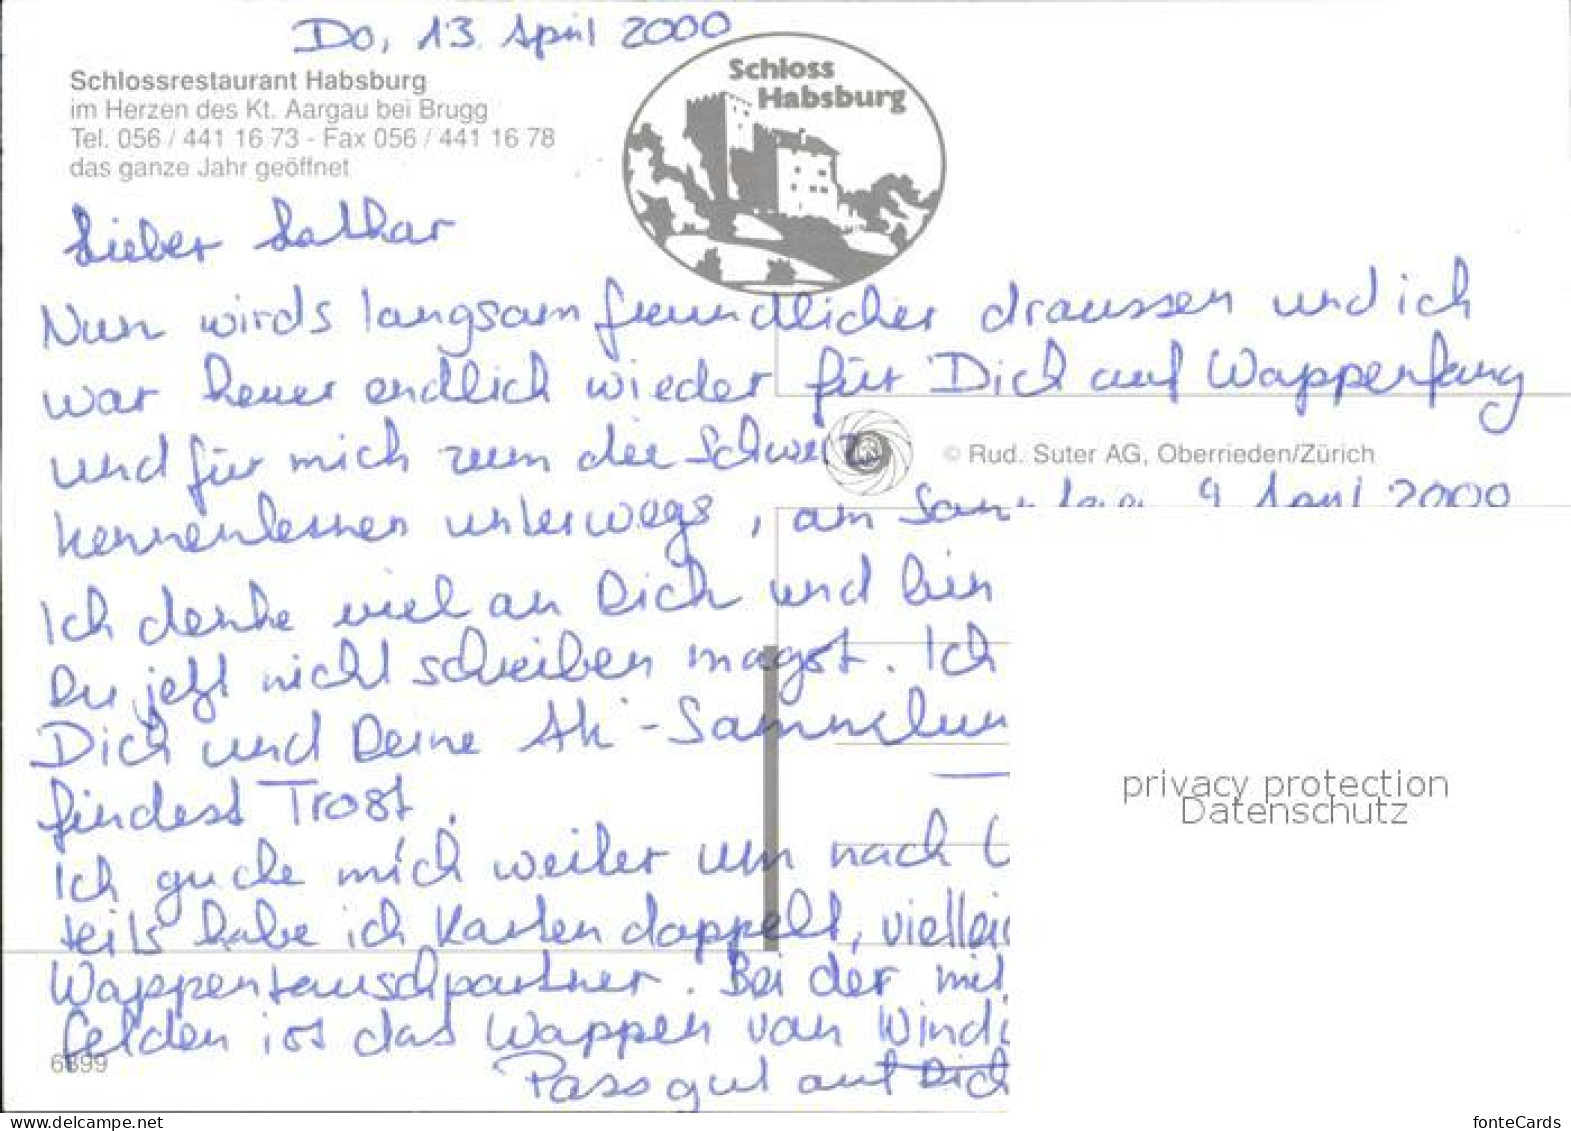 Do, 13. April 2000
Schlossrestaurant Habsburg
im Herzen des Kt. Aargau bei Brugg
Tel. 056 / 441 16 73 - Fax 056 / 441 16 78
das ganze Jahr geöffnet
Schloss
Habsburg
Lieber Lothar
Nun wirds langsam freundlicher draussen und ich
war heuer endlich wieder für Dich auf Wappenfang
und für mich zum die Schweiz
© Rud. Suter AG, Oberrieden/Zürich
kennenlernen unterwegs, am 9. April 2000
Ich denke viel an Dich und bin
Du jetzt nicht schreiben magst. Ich
Dich und Deine Ak-
findest Trost.
Ich gucke mich weiter um nach
teils habe ich Karten doppelt,
Wappentauschpartner. Bei der
felden ist das Wappen von
6899
Pass gut auf Dich
privacy protection
Datenschutz
www.delcampe.net
fonteCards